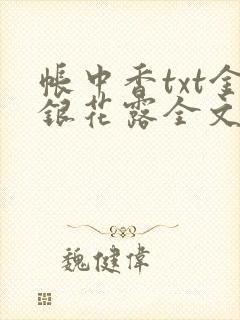 帳中香txt金
銀花露全文
魏健偉